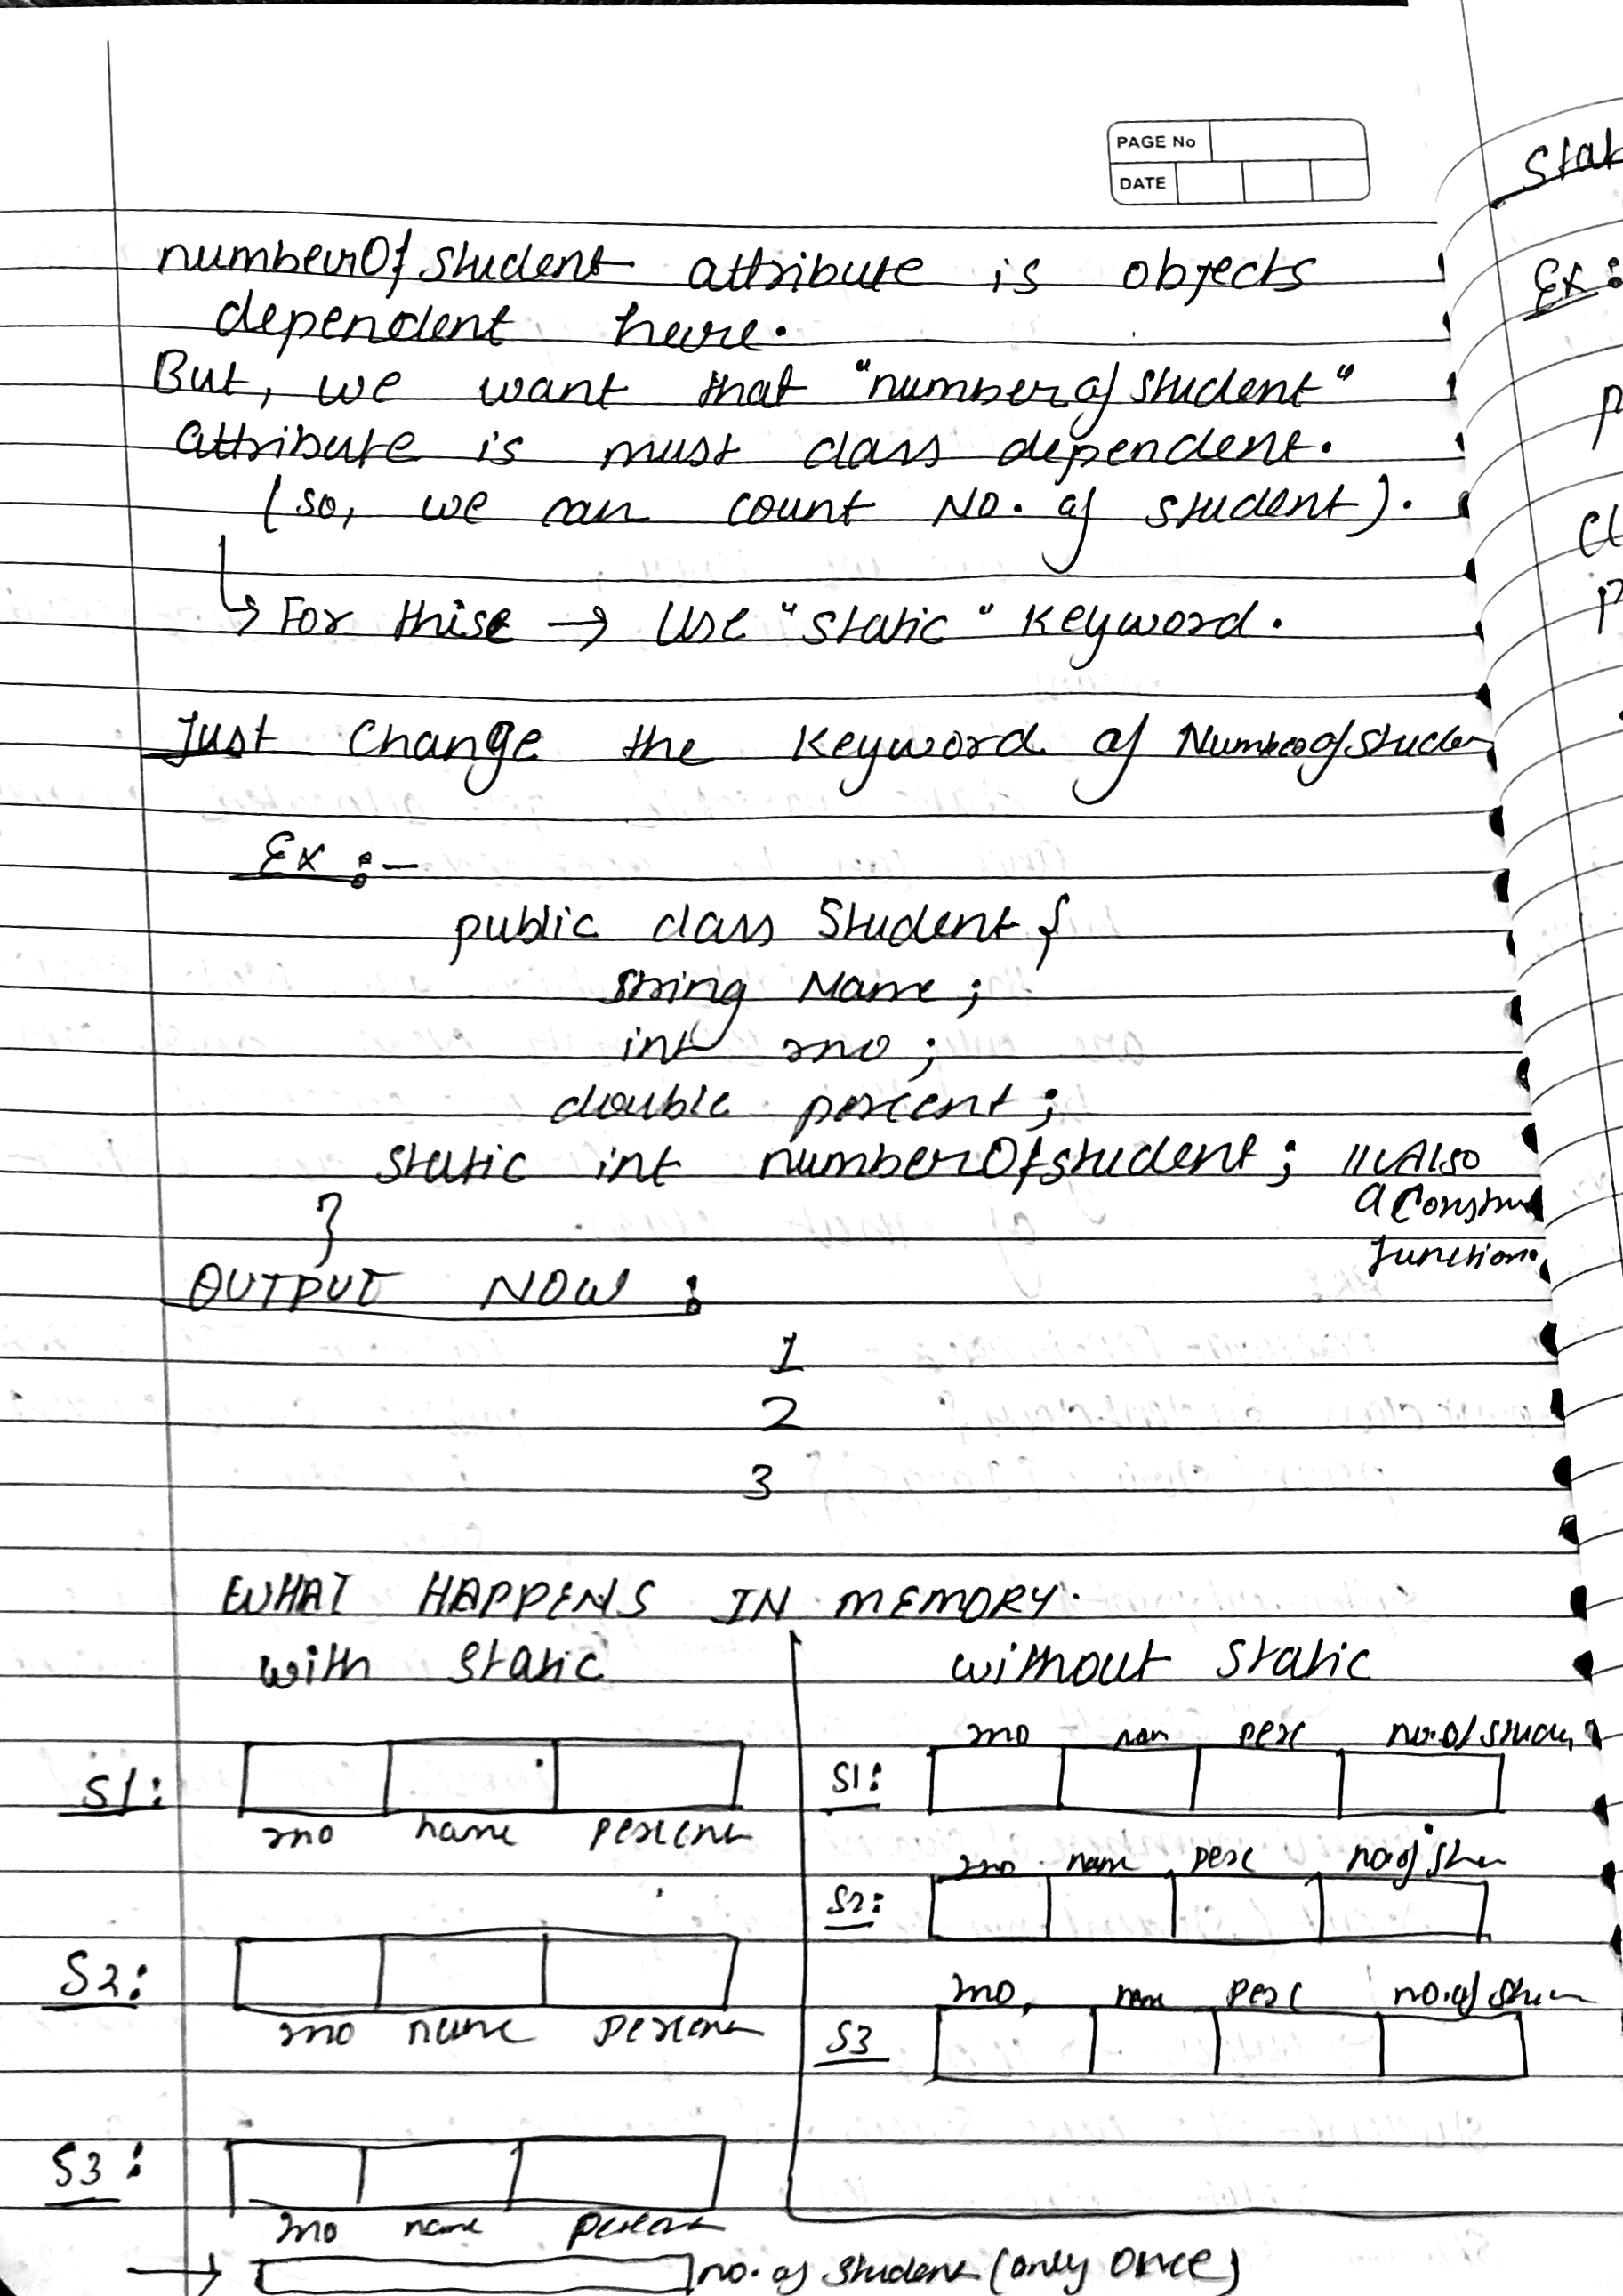 PAGE No
DATE
numberOfstudent attribute is objects
dependent here.
But, we want that "numberofstudent"
attribute is must class dependent.
(so, we can count No. of student).
For this → Use "static" Keyword.
Just Change the Keyword of Numberofstuden
Ex :-
public class Student {
String Name ;
int rno ;
double percent ;
static int numberOfstudent ; // Also
a Constru
function
}
OUTPUT NOW :
1
2
3
WHAT HAPPENS IN MEMORY.
with static
S1:
rno name percent
S2:
rno name percent
S3:
rno name percent
→ no. of student (only once)
without static
rno nam perc no.of studen
S1:
rno name perc no.of stu
S2:
rno. name perc no.of stu
S3
Stat
Ex:
p
Cl
p